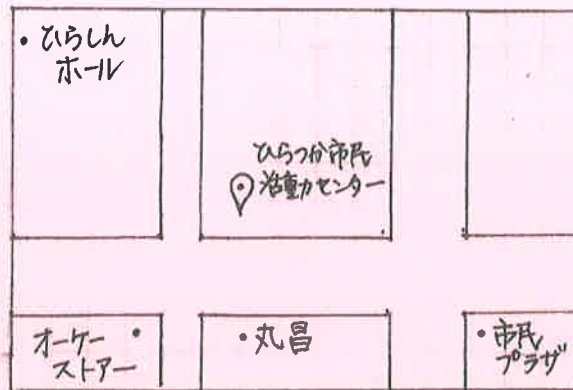 ひらしん
ホール
ひらつか市民
活動センター
オーケー
ストアー
丸昌
市民
プラザ